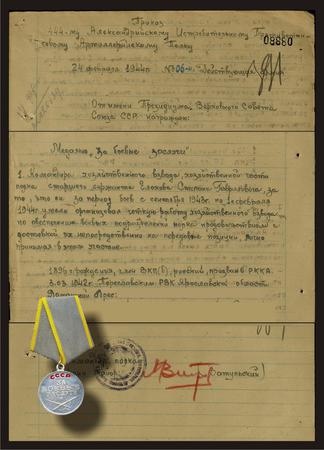 Приказ
444-му Александрийскому Истребительному Противотан-
ковому Артиллерийскому Полку
08880
24 февраля 1944г. № 06-н. Действующая армия
От имени Президиума Верховного Совета
Союза ССР - награждаю:
Медалью „За боевые заслуги"
1. Командира хозяйственного взвода, хозяйственной части
полка старшего сержанта Степана Гавриловича за
то, что он за период боев с сентября 1943г. по 1е февраля
1944г. умело организовал четкую работу хозяйственного взвода
по обеспечению боевых подразделений полка продовольствием с
доставкой их непосредственно на передовые позиции, лично
принимая в этом участие.
1896 г. рождения, член ВКП(б), русский, призван в РККА
3.03.1942г. Переславским РВК Ярославской области
Домашний адрес:
СССР
ЗА
БОЕВЫЕ
ЗАСЛУГИ